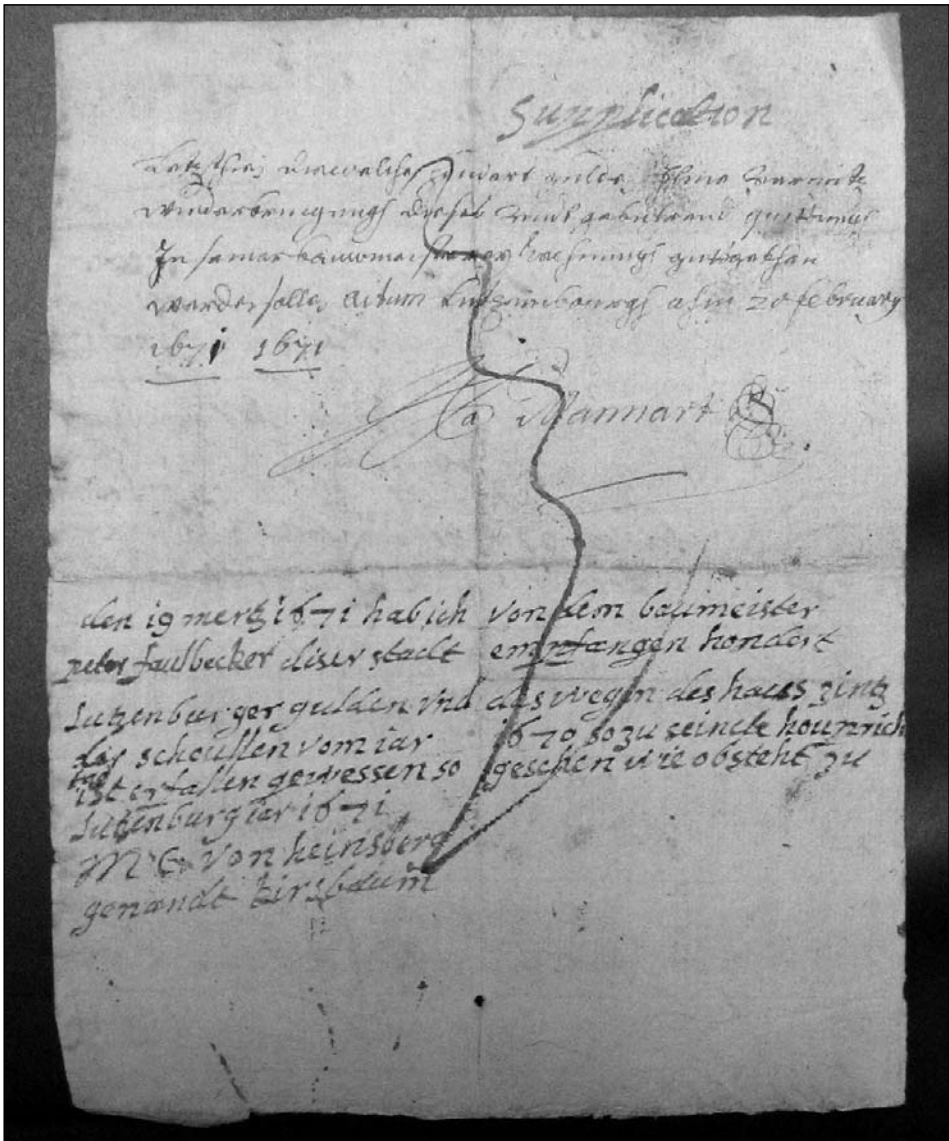 Supplication
hundert
wiederbringungh dieses quittungh
In seiner bauwmeister rechnungh gutgethan
werden solle, actum Lutzembourgh ahm 20 february
1671 1671
Mannart
den 19 mertz 1671 hab ich von dem baumeister
peter faulbecker diser stadt empfangen hondert
Lutzenburger gulden vnd das wegen des haus zintz
der scheussen vom iar 1670 so zu
ist erfallen gewessen so geschen wie obsteht zu
Lutzenburg iar 1671
M C von heinsberg
genandt kirsbaum